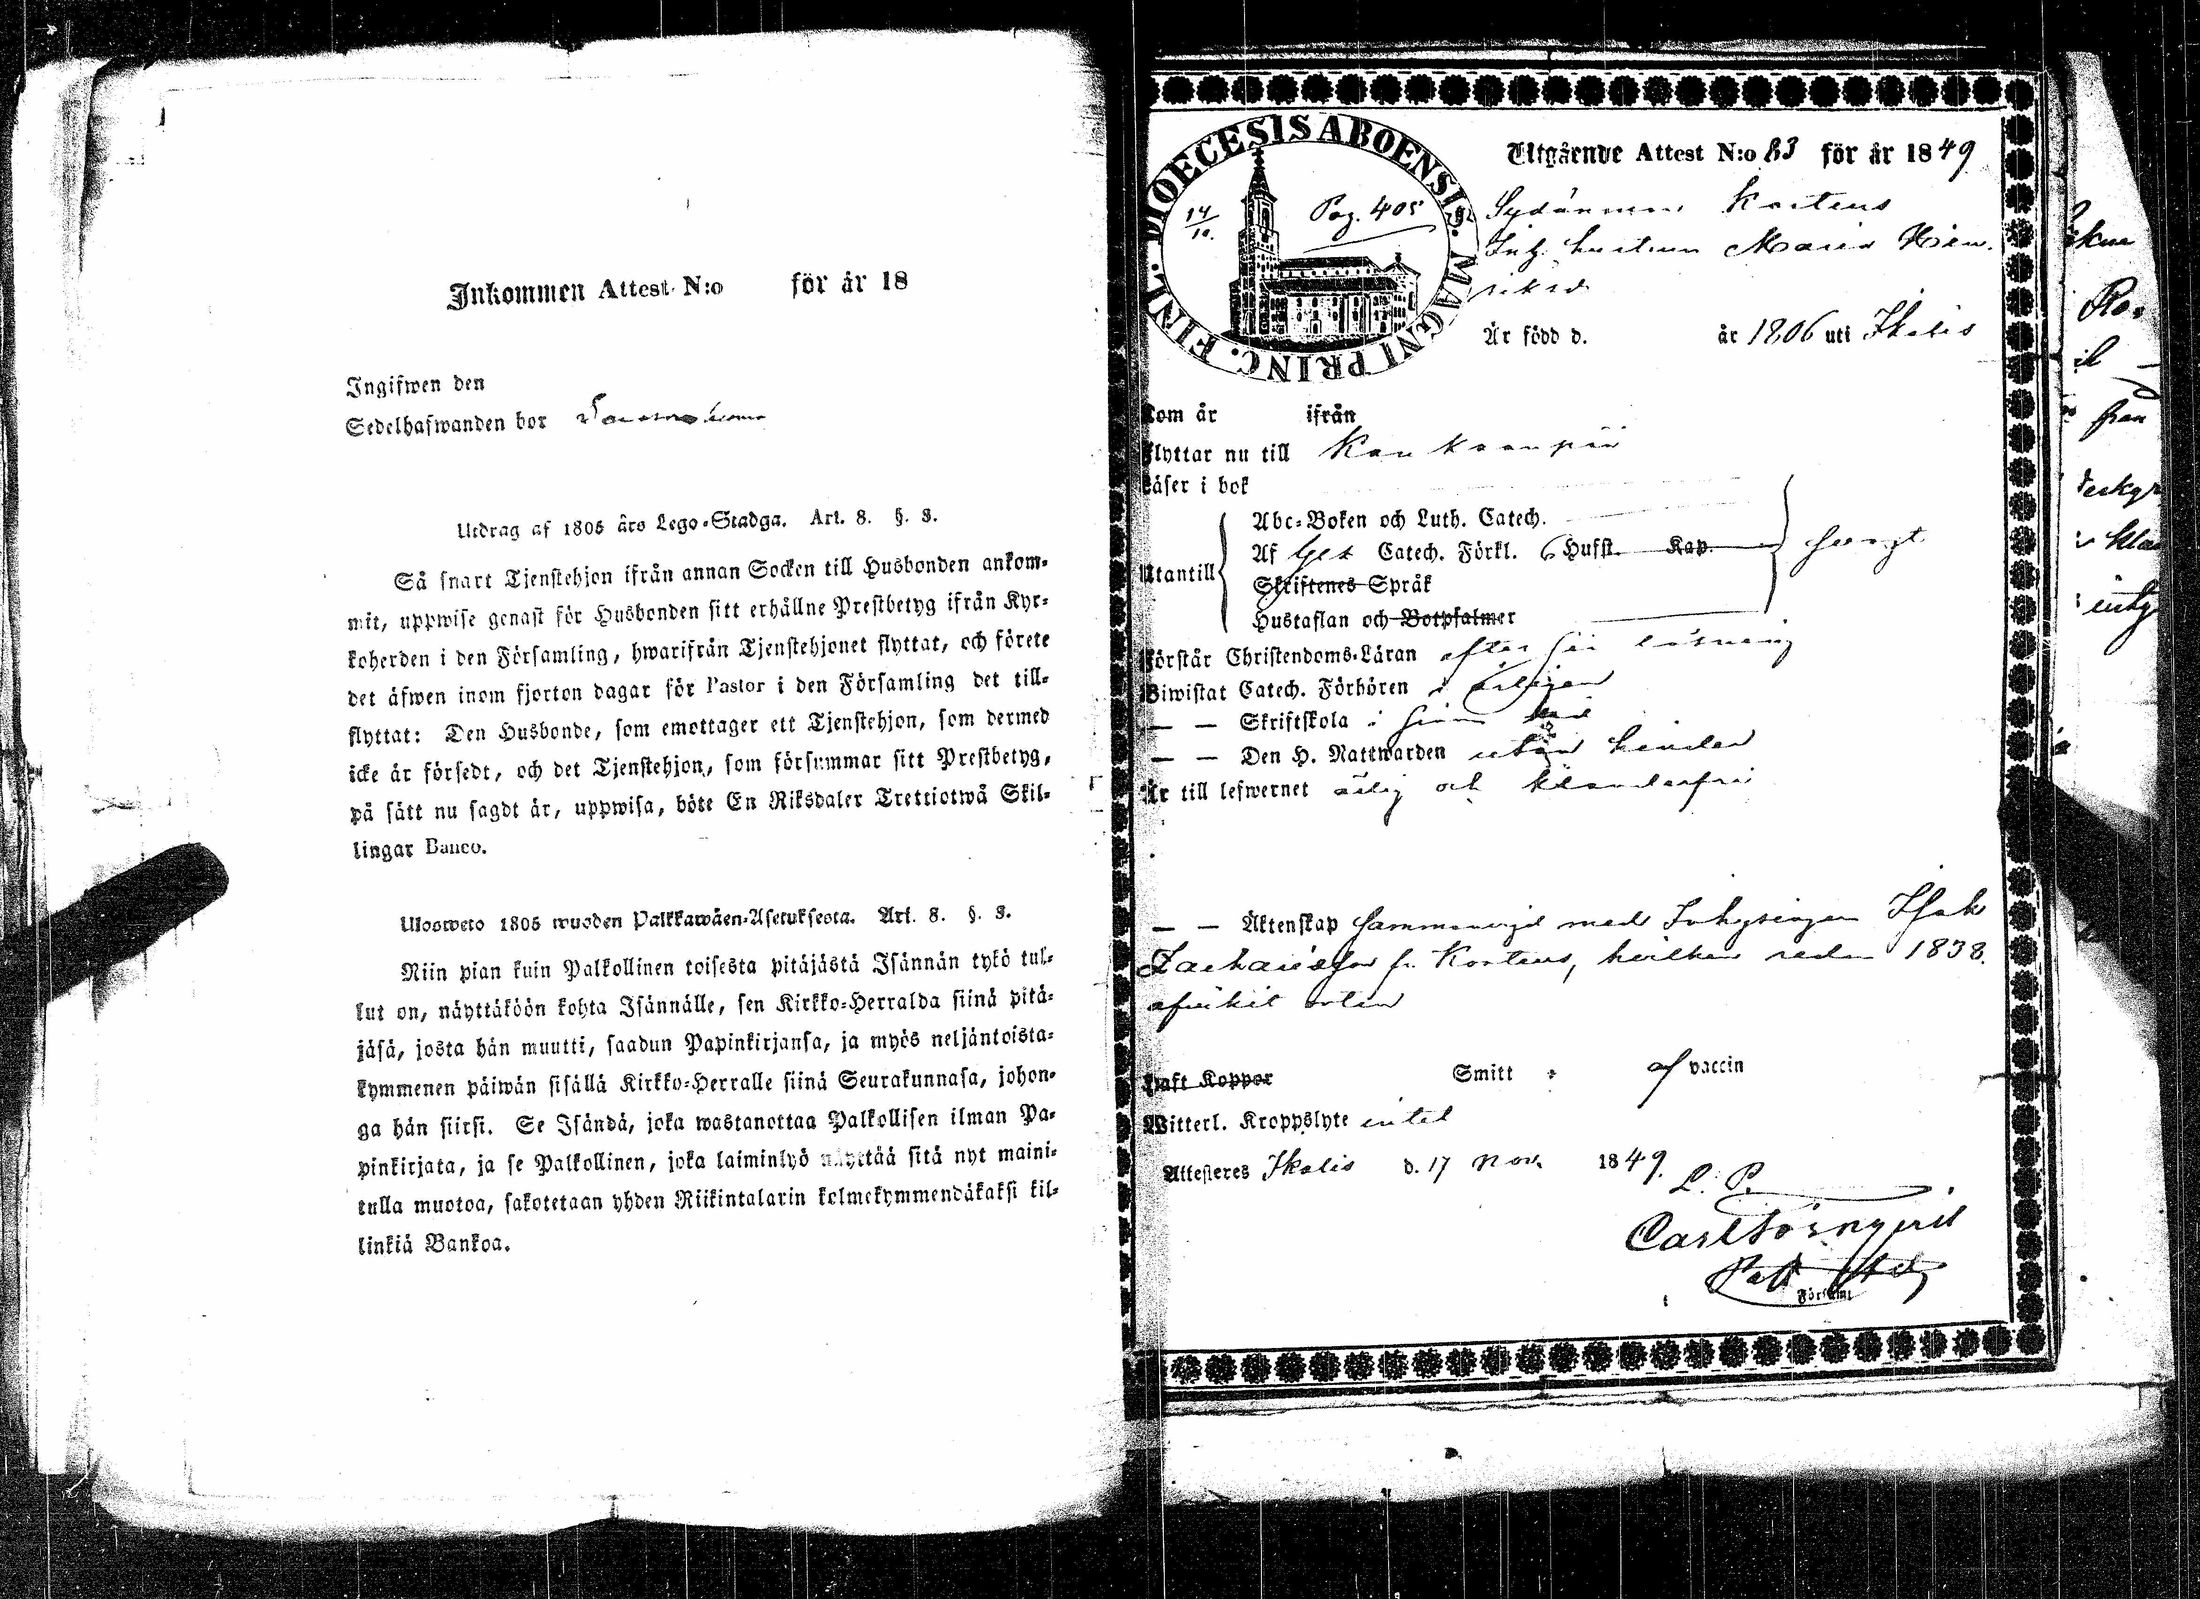 Inkommen Attest N:o för år 18
Ingifwen den
Sedelhafwanden bor
Utdrag af 1805 års Lego-Stadga. Art. 8. §. 3.
Så snart Tjenstehjon ifrån annan Socken till Husbonden ankom-
mit, uppwise genast för Husbonden sitt erhållne Prestbetyg ifrån Kyr-
koherden i den Församling, hwarifrån Tjenstehjonet flyttat, och förete
det äfwen inom fjorton dagar för Pastor i den Församling det till-
flyttat: Den Husbonde, som emottager ett Tjenstehjon, som dermed
icke är försedt, och det Tjenstehjon, som försummar sitt Prestbetyg,
på sätt nu sagdt är, uppwisa, böte En Riksdaler Trettiotwå Skil-
lingar Banco.
Ulosweto 1805 wuoden Palkkawäen-Asetuksesta. Art. 8. §. 3.
Niin pian kuin Palkollinen toisesta pitäjästä Isännän tykö tul-
lut on, näyttäköön kohta Isännälle, sen Kirkko-Herralda siinä pitä-
jäsä, josta hän muutti, saadun Papinkirjansa, ja myös neljäntoista-
kymmenen päiwän sisällä Kirkko-Herralle siinä Seurakunnasa, johon-
ga hän siirsi. Se Isändä, joka wastanottaa Palkollisen ilman Pa-
pinkirjata, ja se Palkollinen, joka laiminlyö näyttää sitä nyt maini-
tulla muotoa, sakotetaan yhden Riikintalarin kolmekymmendäkaksi kil-
linkiä Bankoa.
DIOECESIS ABOENSIS. MAGNI PRINC. FINL.
14/10. Pag. 405
Utgående Attest N:o 83 för år 1849
Sydänmaa Kortens
Inh. hustrun Maria Hen-
riksd.
Är född d. år 1806 uti Ikalis
Kom år ifrån
Flyttar nu till Kankaanpää
Läser i bok
Utantill
Abc-Boken och Luth. Catech.
Af Catech. Förkl. 6 Hufst. Kap.
Skriftenes Språk
Hustaflan och Botpsalmer
swagt
Förstår Christendoms-Läran efter sin läsning
Biwistat Catech. Förhören årligen
— — Skriftskola i sin tid
— — Den H. Nattwarden utan hinder
Är till lefwernet ärlig och klanderfri
— — Äktenskap sammanvigd med Inhysingen Isak
Zachariesson fr. Kortens, hvilken redan 1838.
afvikit orten
Haft Koppor Smitt af vaccin
Witterl. Kroppslyte intet
Attesteres Ikalis d. 17 Nov. 1849.
L. P.
Carl Törnqvist
Församl